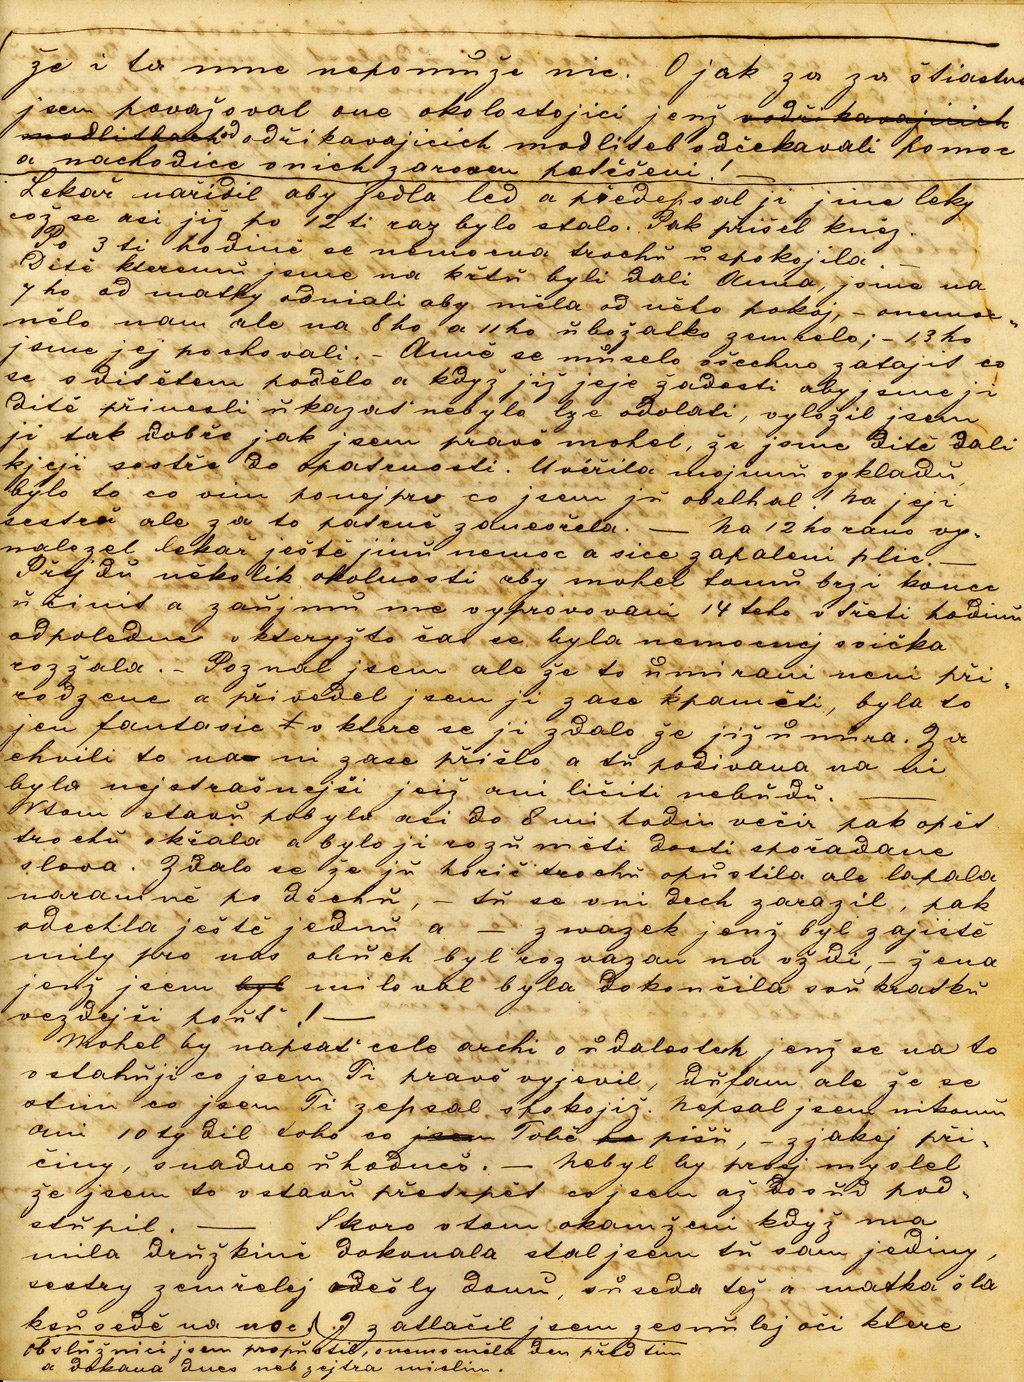 že i ta mne nepomůže nic. O jak za za štiastne
jsem považoval one okolostojici jenž vodřikavajicich
modlitbach od odřikavajicich modliteb odčekavali pomoc
a nachodice vnich zaroven potěšeni! —
Lekař nařidil aby jedla led a předepsal ji jine leky
což se asi již po 12ti raz bylo stalo. Pak přišel kněz.
Po 3ti hodině se nemocna trochu uspokojila. —
Ditě kteremu jsme na křtu byli dali Anna, jsme na
7ho od matky odniali aby měla od něho pokoj, – onemoc-
nělo nam ale na 8ho a 11ho ubožatko zemřelo; – 13ho
jsme jej pochovali. – Anně se muselo všechno zatajit co
se s ditětem podělo a když již jeje žadosti aby jsme ji
ditě přinesli ukazat nebylo lze odolati, vyložil jsem
ji tak dobře jak jsem pravě mohel, že jsme ditě dali
kjeji sestře do opatrnosti. Uvěřila mojmu vykladu,
bylo to co vim ponejprv co jsem ju obelhal! na jeji
sestru ale za to patrně zanevřela. — Na 12ho rano vy-
nalozel lekař ještě jinu nemoc a sice zapaleni plic. —
Přejdu několik okolnosti aby mohel tomu brzi konec
učinit a zaujmu me vypravovani 14teho v třeti hodinu
odpoledne v kteryžto čas se byla nemocnej svička
rozžala. – Poznal jsem ale že to umirani neni při-
rodzene a přivedel jsem ji zase kpaměti, byla to
jen fantasie v ktere se ji zdalo že již umira. Za
chvili to na ni zase přišlo a tu podivana na ni
byla nejstrašnejši jeiž ani ličiti nebudu. —
Vtom stavu pobyla asi do 8mi hodin večir pak opět
trochu okřala a bylo ji rozuměti dosti spořadane
slova. Zdalo se že ju horič trochu opustila ale lapala
naramně po děchu, – tu se vni dech zarazil, pak
odechla ještě jednu a — zwazek jenž byl zajistě
mily pro nas obuch byl rozvazan na vždi, – žena
jenž jsem byl miloval byla dokončila svu kratku
vezdejši pouť! —
Mohel by napsať cele archi o udalostech jenž se na to
vstahuji co jsem Ti pravě vyjevil, dufam ale že se
otim co jsem Ti zepsal spokojiž. Nepsal jsem nikomu
ani 10ty dil toho co jsem Tobě pišu, – z jakej při-
činy, snadno uhodneš. — Nebyl by prvej myslel
že jsem to vstavu přetrpět co jsem až dosud pod-
stupil. — Skoro vtom okamženi když ma
mila družkině dokonala stal jsem tu sam jediny,
sestry zemřelej odešly domu, suseda tež a matka šla
ksusedě na noc. zatlačil jsem zesnulej oči ktere
obslužnici jsem propustil, onemocněla den před tim
a dokana dnes neb zejtra mislim.